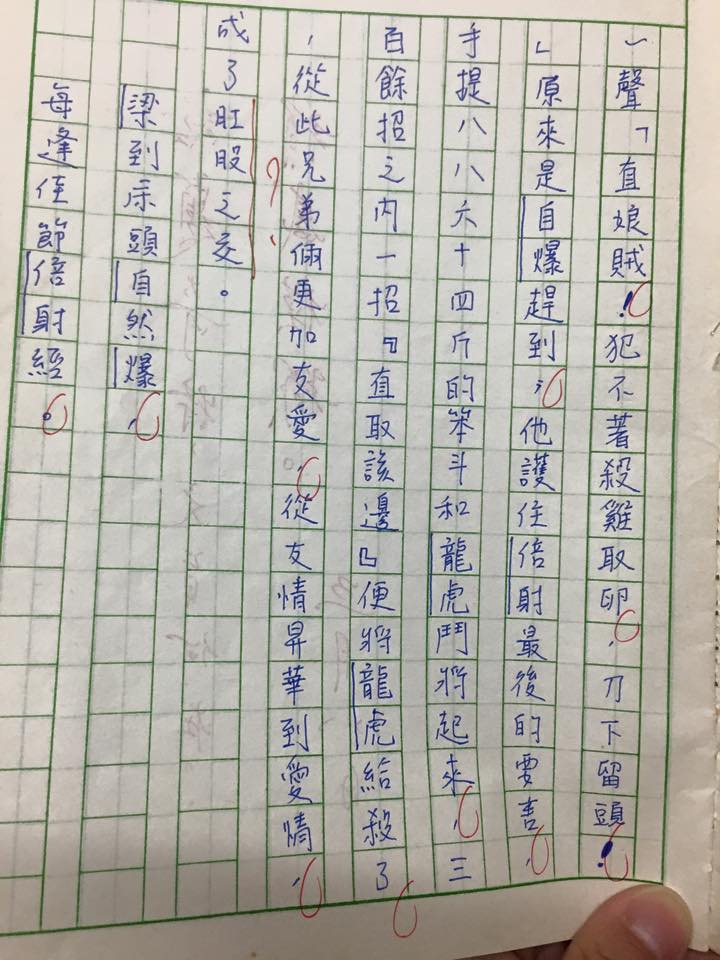 一聲「直娘賊！犯不著殺雞取卵，刀下留頭！
」原來是自爆趕到，他護住倍射最後的要害，
手提八八六十四斤的笨斗和龍虎鬥將起來，三
百餘招之內一招『直取該邊』便將龍虎給殺了
，從此兄弟倆更加友愛，從友情昇華到愛情，
成了肛股之交。
梁到示頭自然爆，
每逢佳節倍射經。